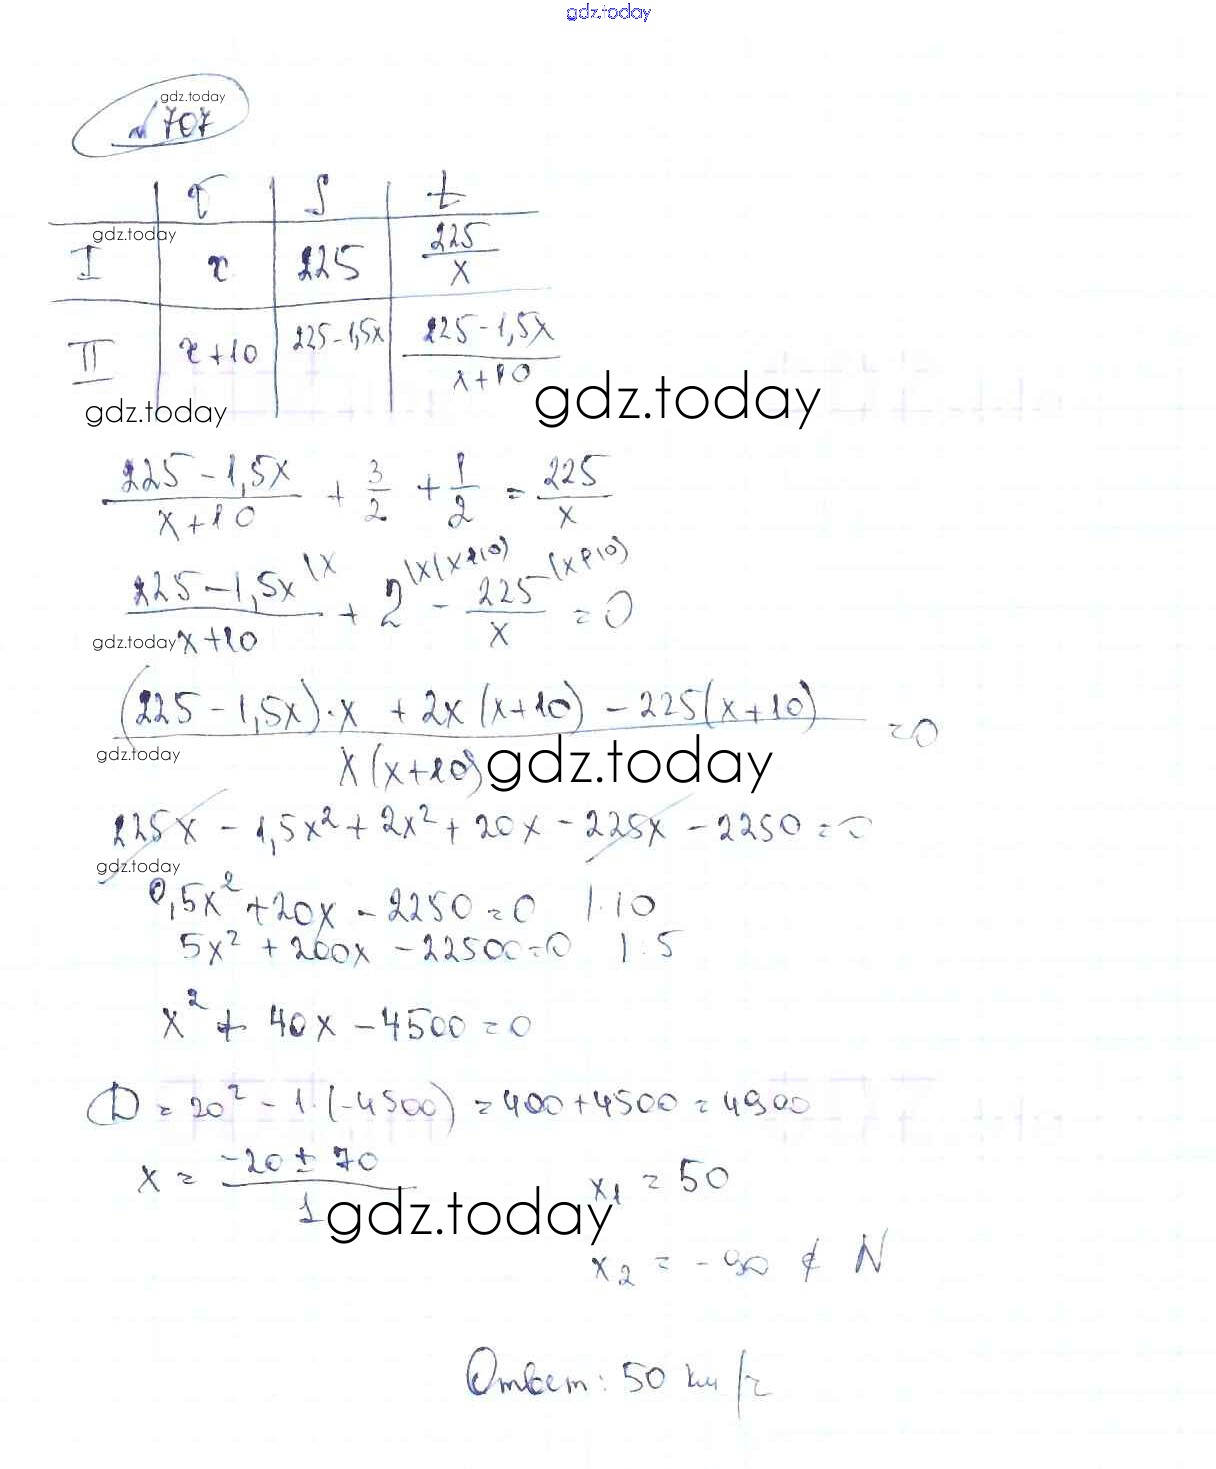 gdz.today
gdz.today
№ 707
v S t
gdz.today
I x 225 225/x
II x+10 225-1,5x (225-1,5x)/(x+10)
gdz.today gdz.today
(225-1,5x)/(x+10) + 3/2 + 1/2 = 225/x
(225-1,5x)/(x+10) (x + 2 (x(x+10) - 225/x (x+10) = 0
gdz.today
((225-1,5x)·x + 2x(x+10) - 225(x+10))/(x(x+10)) = 0
gdz.today gdz.today
225x - 1,5x² + 2x² + 20x - 225x - 2250 = 0
gdz.today
0,5x² + 20x - 2250 = 0 |·10
5x² + 200x - 22500 = 0 |:5
x² + 40x - 4500 = 0
D = 20² - 1·(-4500) = 400 + 4500 = 4900
x = (-20 ± 70)/1 x₁ = 50
gdz.today
x₂ = -90 ∉ N
Ответ: 50 км/ч